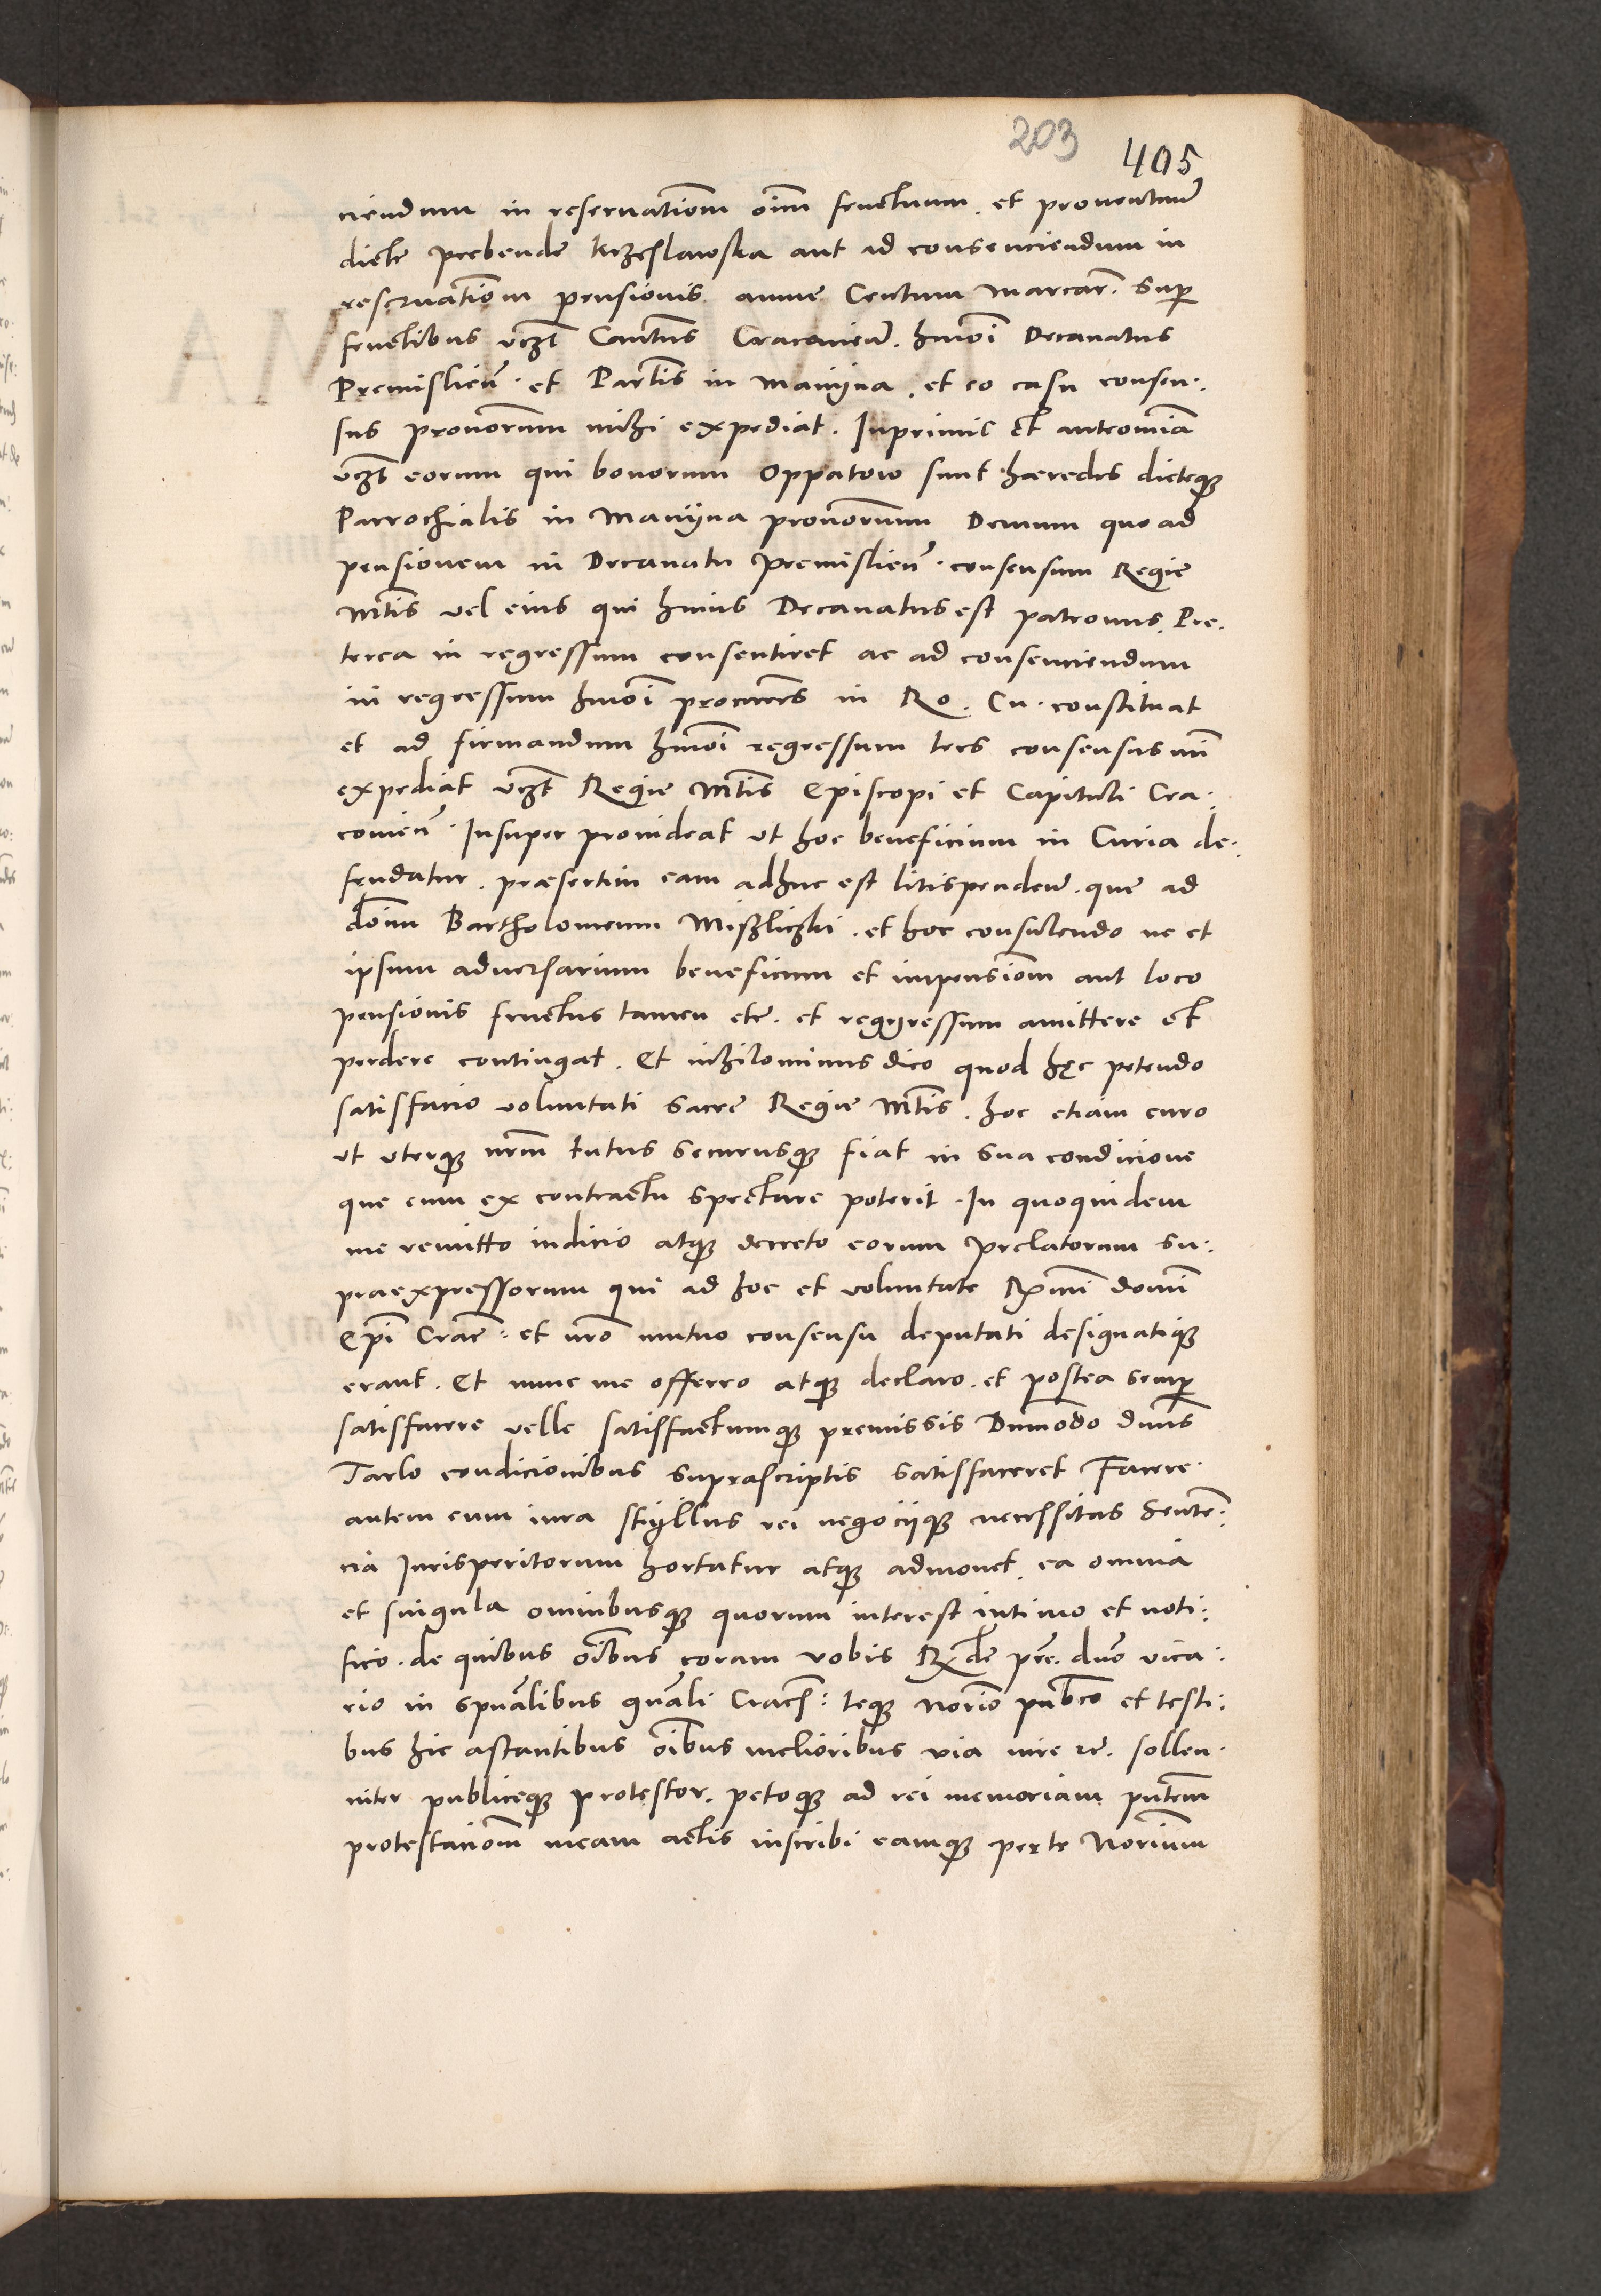 203
405
ciendum in reseruationem oim fructuum et prouentuum
dicte prebende krzeslawska aut ad consenciendum in
reseruationem pensionis annue Centum marcar. Sup
fructibus vczt Cantus Cracouien. hmoi Decanatus
Premislien. et Partis in maniyna. et eo casu consen
sus pronorum mihi expediat. Inprimis et
vczt eorum qui bonorum Oppatow sunt hæredes dicteqз
Parrochialis in maniyna Demum quo ad
pensionem in Decanatu Premislien. consensum Regie
Mtis vel eius qui huius Decanatus est patronus. Pre
terea in regressum consentiret ac ad consenciendum
in regressum hmoi procures in Ro. Cu. constituat
et ad firmandum hmoi regressum tres consensus mi
expediat vczt Regie Mtis Episcopi et Capituli Cra
couien. Insuper prouideat ut hoc beneficium in Curia de
fendatur. præsertim eam adhuc est litispenden. que ad
dom Bartholomeum Mißliczki. et hoc consulendo ne et
ipsum aduersarium beneficium et inpensiom aut loco
pensionis fructus tamen etc. et reggressum amittere et
perdere contingat. Et nihilominus dico quod hęc petendo
satisfacio voluntati sacre Regie Mtis. hoc etiam curo
ut uterqз nrm tutus securusqз fiat in sua condicione
que eum ex contractu spectare poterit. In quoquidem
me remitto iudicio atqз decreto eorum prelatorum su
praexpressorum qui ad hoc et voluntate Rmi domi
Epi Crac: et nro mutuo consensu deputati designatiqз
erant. Et nunc me offerro atqз declaro. et postea semp
satisfacere velle satisfactumqз premissis Dummodo dnus
Tarlo condicionibus suprascriptis satisfaceret Facere
autem eum iura styllus rei negociiqз necessitas Senten
cia Jurisperitorum hortatur atqз admonet. ea omnia
et singula omnibusqз quorum interest intimo et noti
fico. de quibus oibus coram vobis Rde pre. dno vica
rio in spualibus gnali Crac: teqз norio pubco et testi
bus hic astantibus oibus melioribus via iure etc. sollen
niter publiceqз protestor. petoqз ad rei memoriam pntem
protestaciom meam actis inscribi eamqз per te Norium